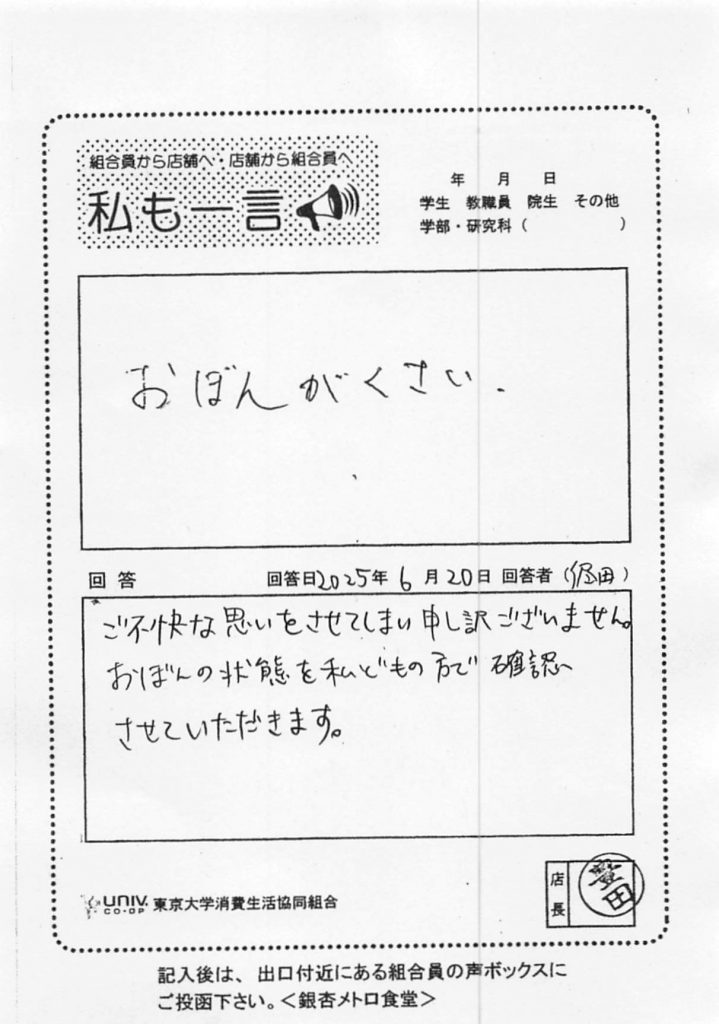 組合員から店舗へ・店舗から組合員へ
私も一言
年 月 日
学生 教職員 院生 その他
学部・研究科（ ）
おぼんがくさい.
回答 回答日2025年6月20日 回答者（堀田）
ご不快な思いをさせてしまい申し訳ございません。
おぼんの状態を私どもの方で確認
させていただきます。
店長 豊田
UNIV. CO-OP 東京大学消費生活協同組合
記入後は、出口付近にある組合員の声ボックスに
ご投函下さい。＜銀杏メトロ食堂＞